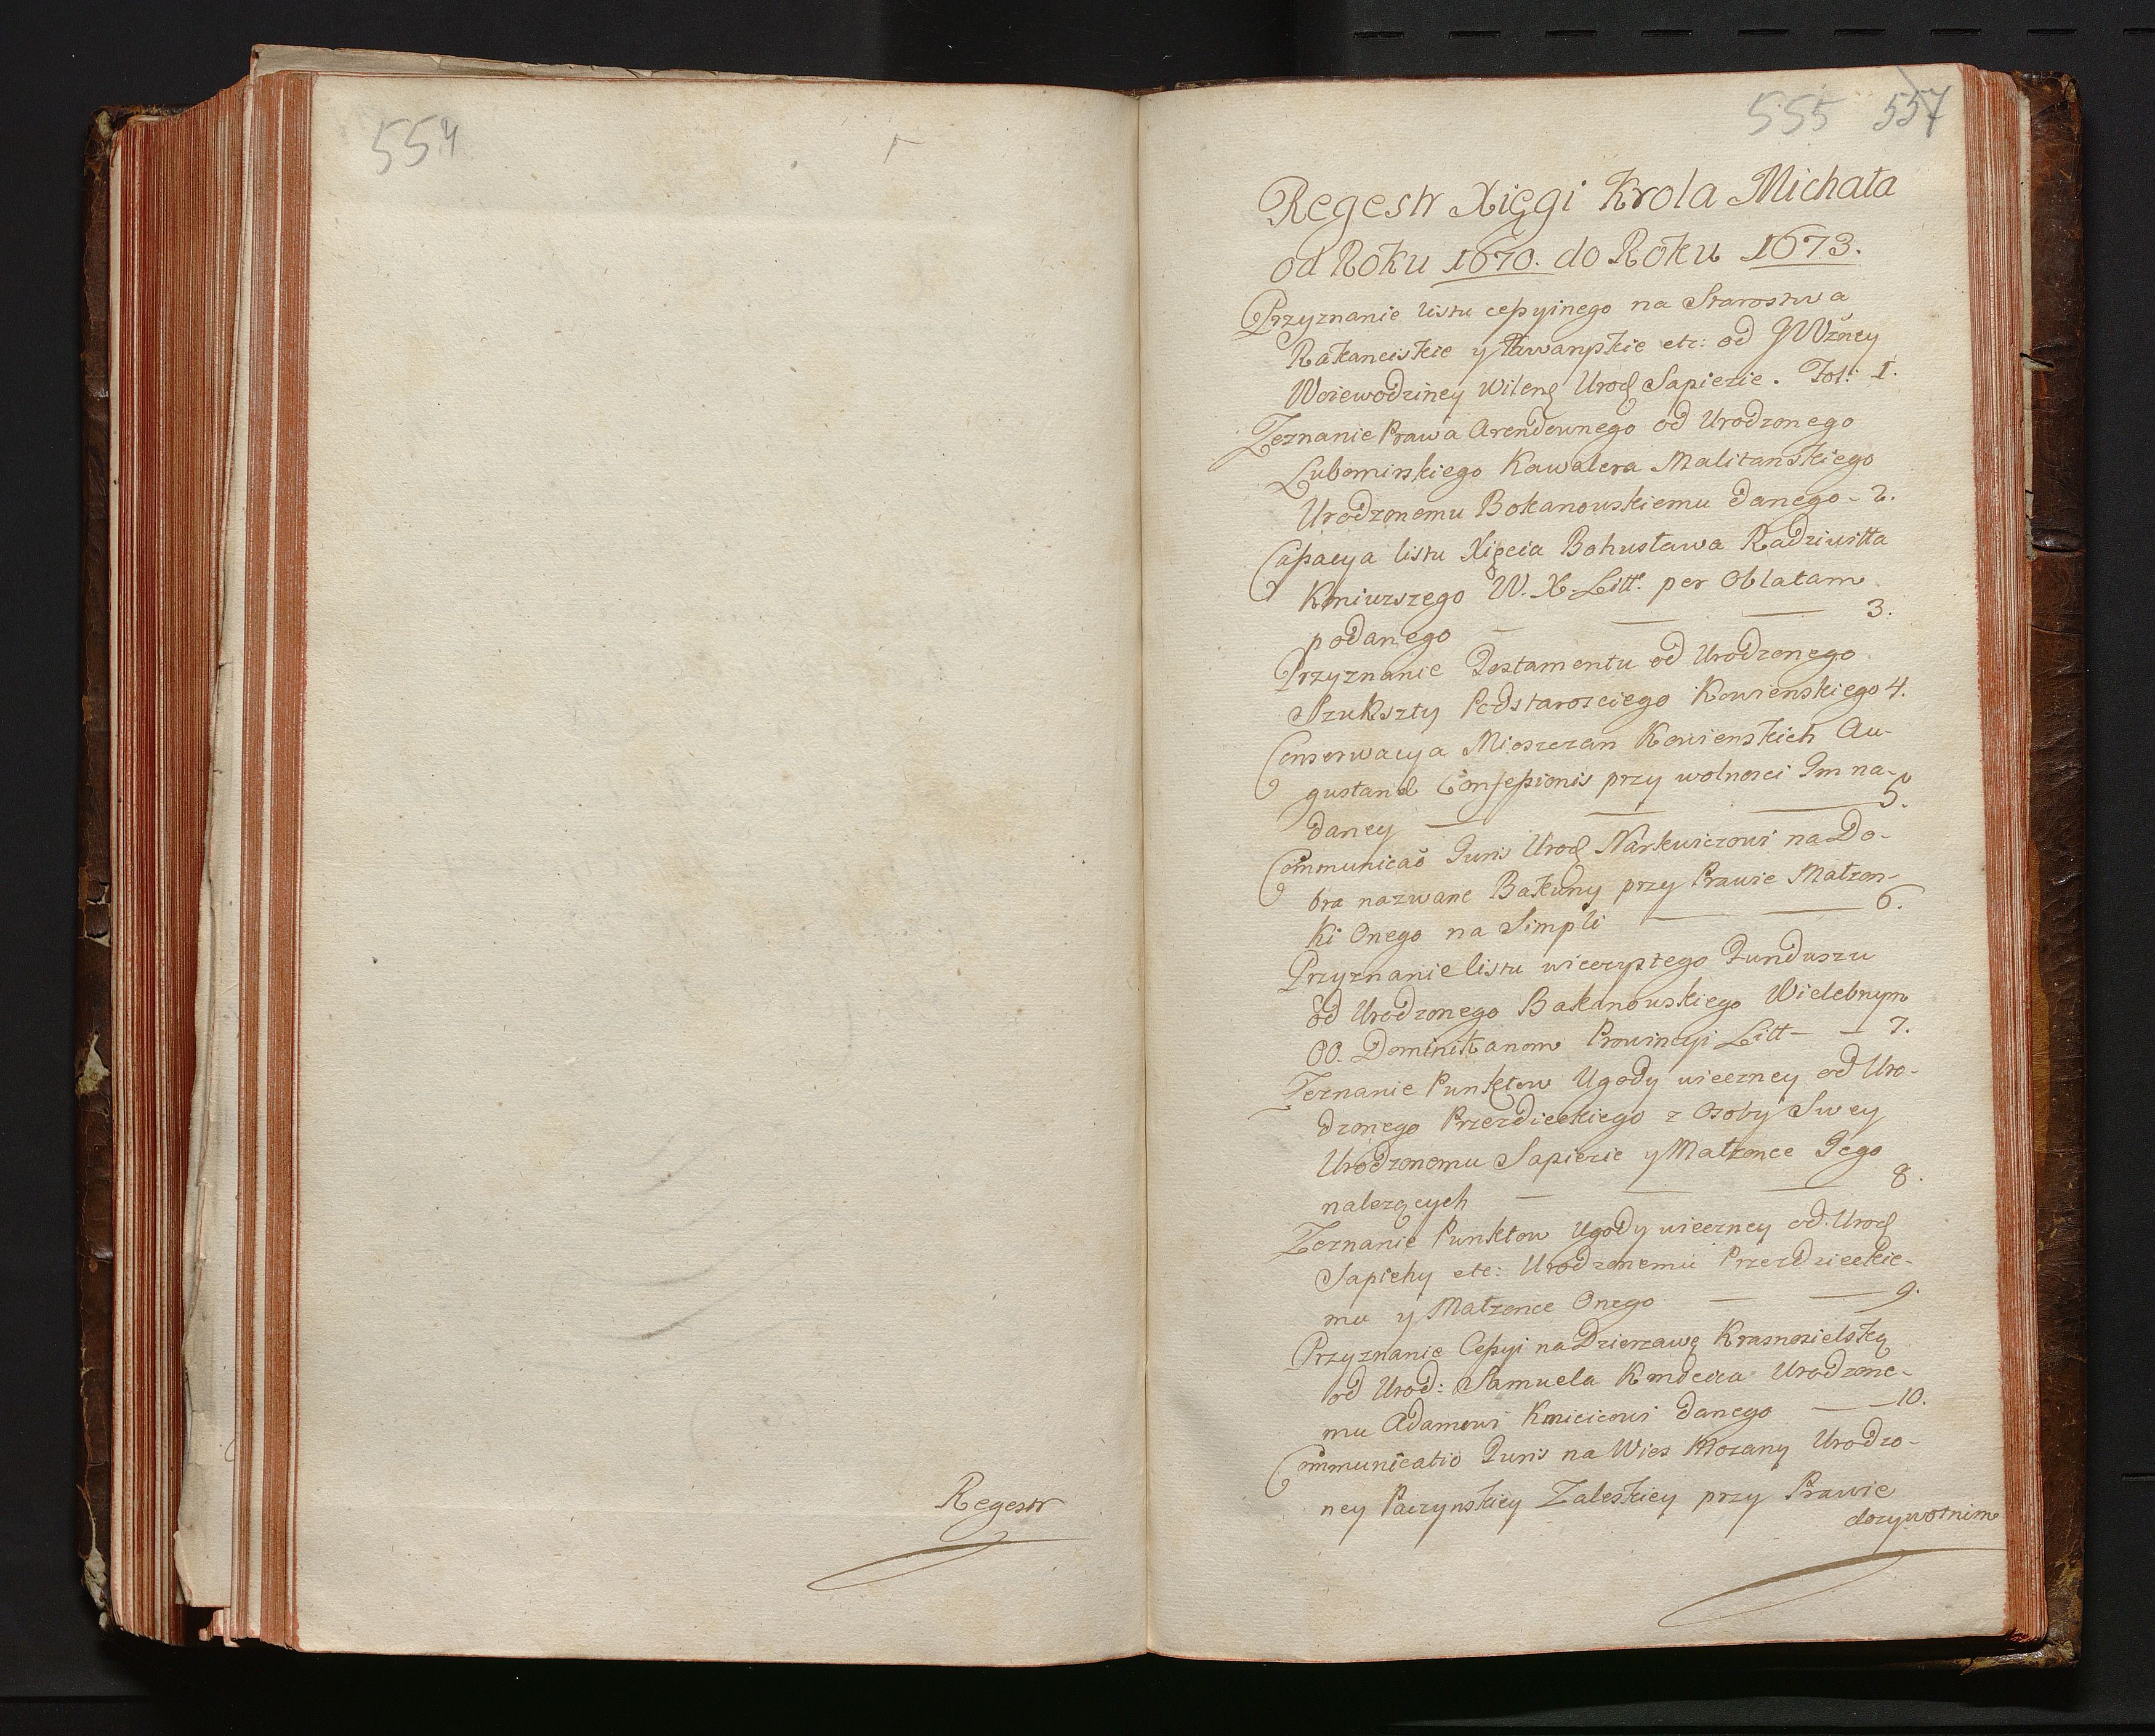 554
Regestr
555 557
Regestr Xięgi Krola Michała
od Roku 1670. do Roku 1673.
Przyznanie listu cessyinego na Starostwa
Rakanciskie y etc: od JWżney
Woiewodziney Wileń Urod Sapiezie. Fol: 1.
Zeznanie Prawa Arendownego od Urodzonego
Lubomirskiego Kawalera Malitanskiego
Urodzonemu Bokanowskiemu danego - 2.
Cassacya listu Xięcia Bohusława Radziwiłła
Koniuszego W. X. Litt: per Oblatam
podanego — — — 3.
Przyznanie Testamentu od Urodzonego
Szukszty Podstarosciego Kowienskiego 4.
Conserwacya Mieszczan Kowienskich Au-
gustanæ Confessionis przy wolnosci Im na-
daney — — — 5.
Communicao Juris Urod Narkwiczowi na Do-
bra nazwane Bakuny przy Prawie Małzon-
ki Onego na Simpli — — 6.
Przyznanie listu wieczystego Funduszu
od Urodzonego Bakanowskiego Wielebnym
OO. Dominikanom Prowincyi Litt — — 7.
Zeznanie Punktow Ugody wieczney od Uro-
dzonego Przezdieckiego z Osoby Swey
Urodzonemu Sapiezie y Małzonce Jego
nalezących — — — 8.
Zeznanie Punktow Ugody wieczney od Urod
Sapiehy etc: Urodzonemu Przezdzieckie-
mu y Małzonce Onego — — 9.
Przyznanie Cessyi na Dzierzawę Krasnosielską
od Urod: Samuela Urodzone-
mu Adamowi Kmicicowi danego — — 10.
Communicatio Juris na Wies Mozany Urodzo-
ney Paczynskiey Zaleskiey przy Prawie
dozywotnim